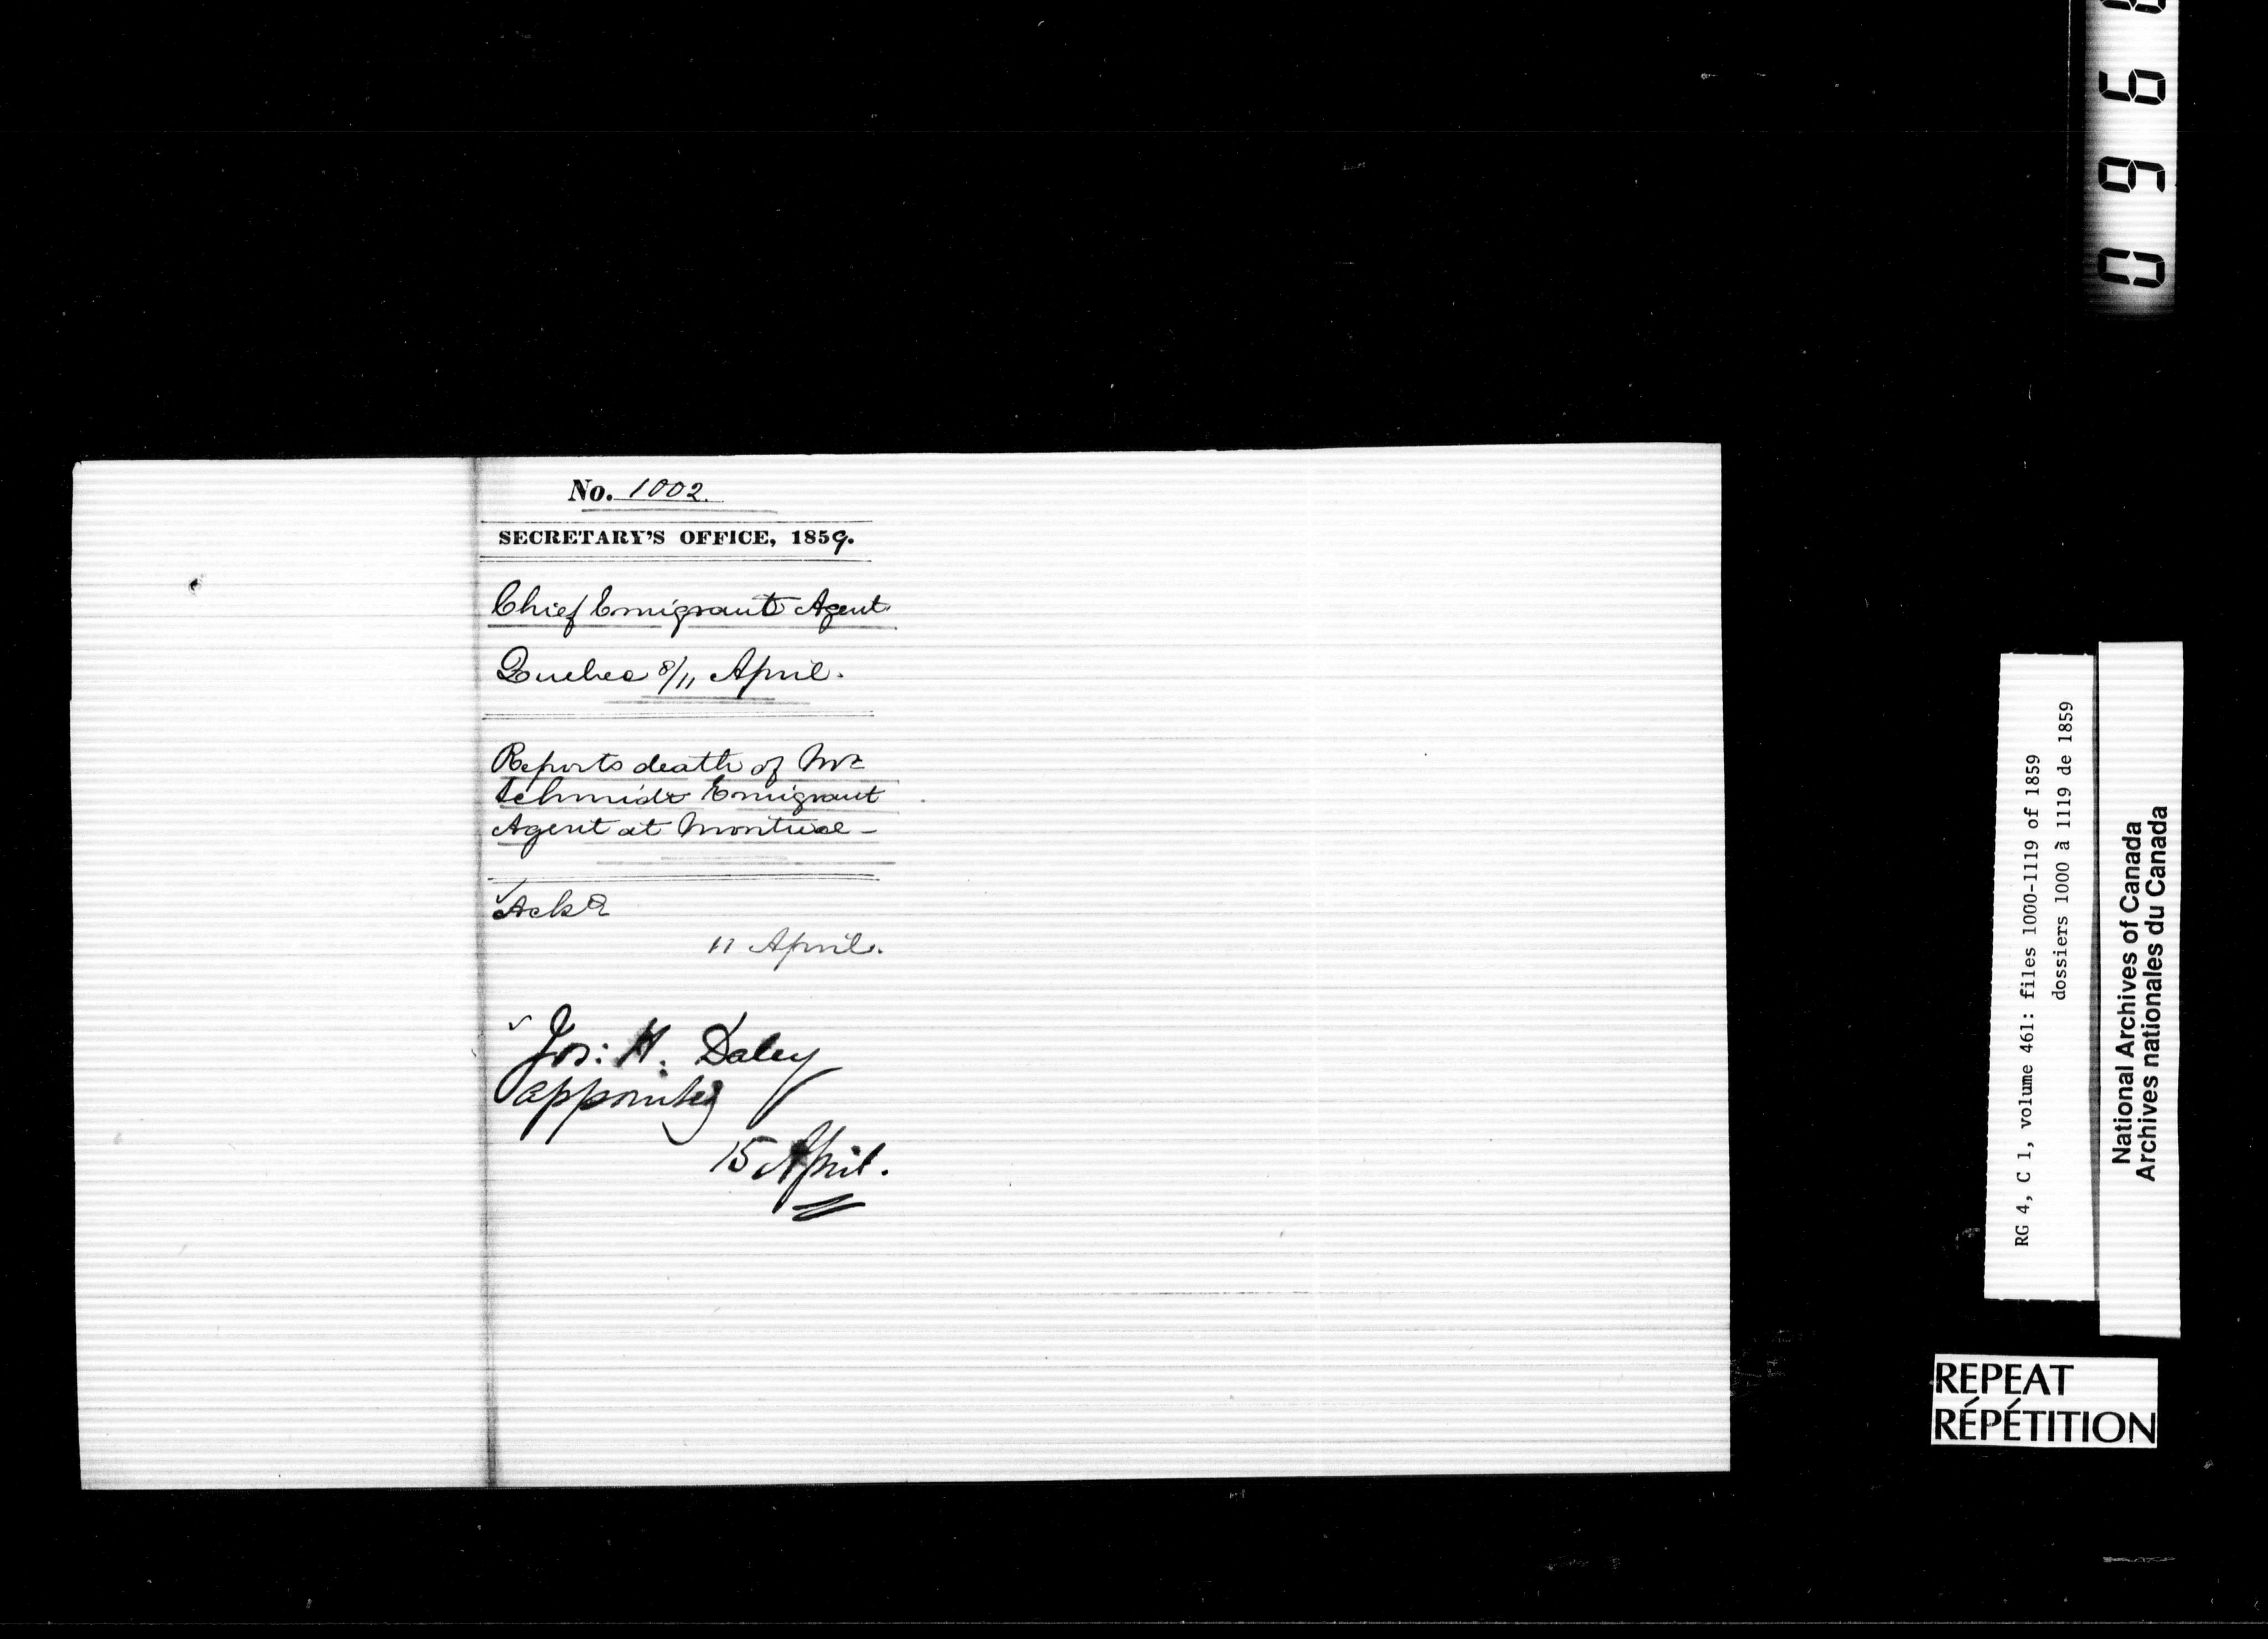 No. 1002.
SECRETARY'S OFFICE, 1859.
Chief Emigrant Agent
Quebec 8/11 April.
Reports death of Mr
Schmidt Emigrant
Agent at Montreal -
Ackd
11 April.
Jos: H. Daley
appointed
15 April.
RG 4, C 1, volume 461: files 1000-1119 of 1859
dossiers 1000 à 1119 de 1859
National Archives of Canada
Archives nationales du Canada
REPEAT
RÉPÉTITION